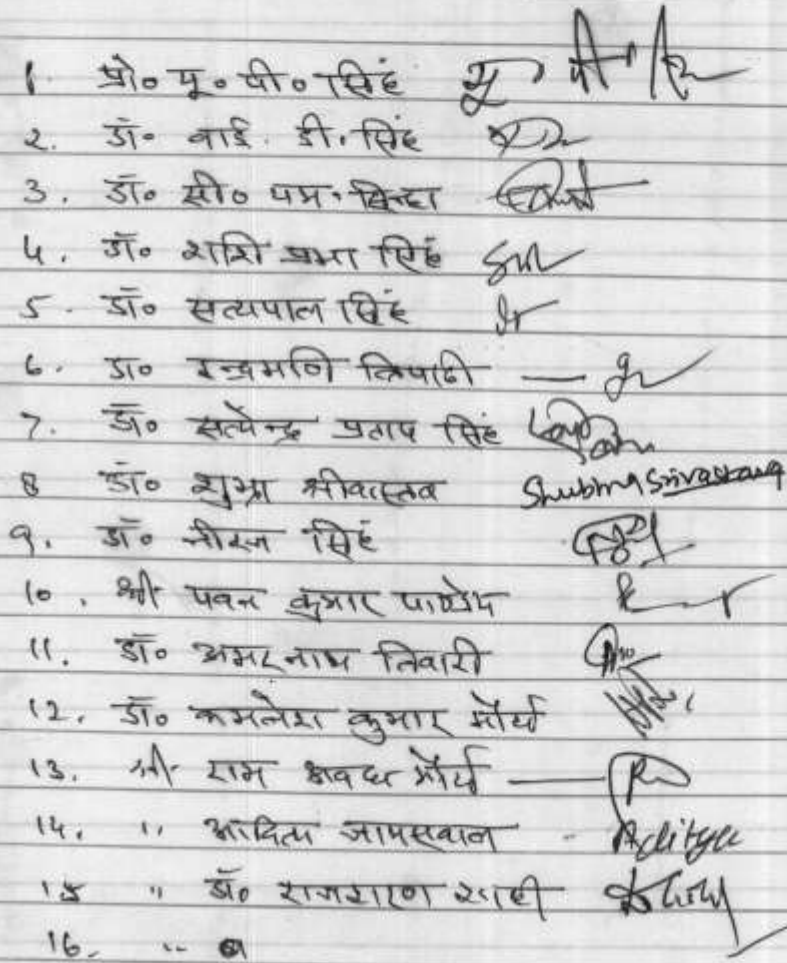 1. प्रो० यू० पी० सिंह
2. डॉ० वाई. डी. सिंह
3. डॉ० सी० एम. सिन्हा
4. डॉ० शशि प्रभा सिंह
5. डॉ० सत्यपाल सिंह
6. डा० इन्द्रमणि त्रिपाठी —
7. डॉ० सत्येन्द्र प्रताप सिंह
8 डॉ० शुभ्रा श्रीवास्तव Shubhra Srivastava
9. डॉ० नीरज सिंह
10. श्री पवन कुमार पाण्डेय
11. डॉ० अमरनाथ तिवारी
12. डॉ० कमलेश कुमार मौर्य
13. श्री राम अवध मौर्य —
14. " आदित्य जायसवाल - Aditya
15 " डॉ० राजशरण शाही
16. "